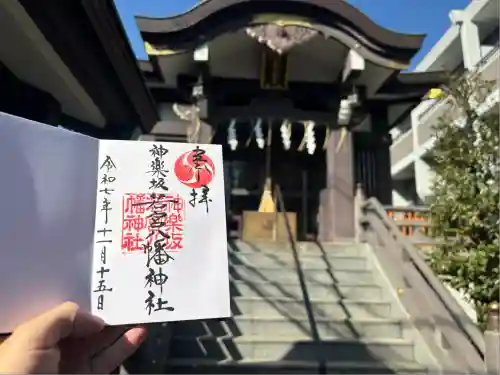 奉拝
神楽坂若宮八幡神社
神楽坂
若宮八
幡神社
令和七年十一月十五日